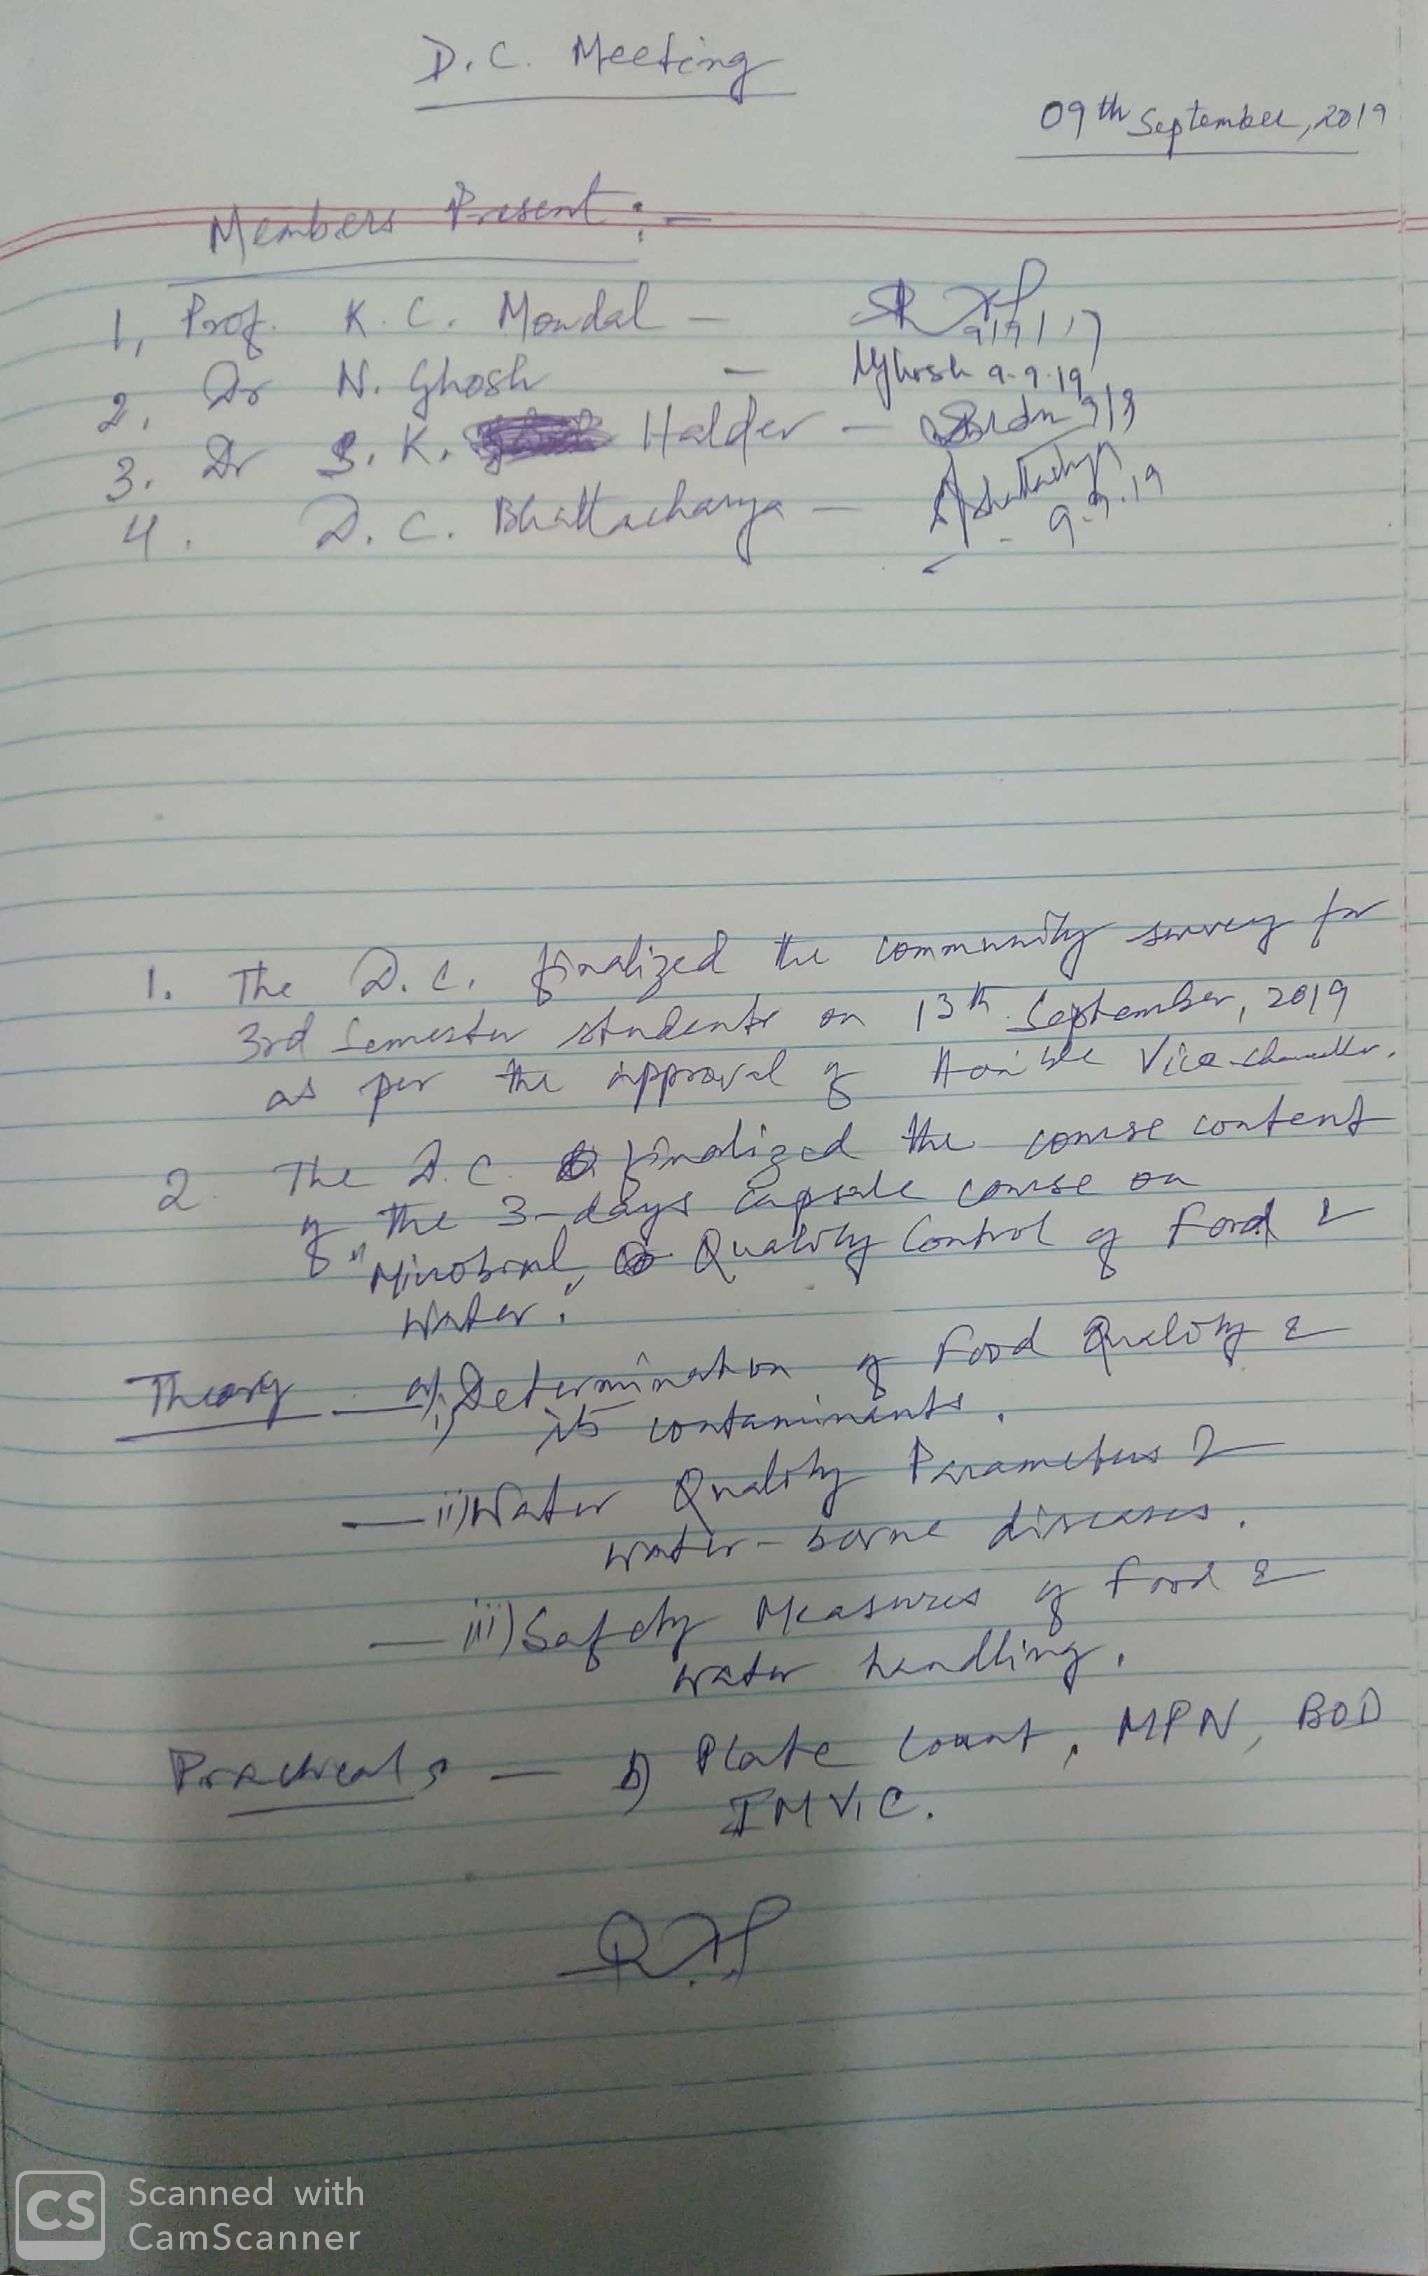 D.C. Meeting
09th September, 2019
Members Present :-
1, Prof. K. C. Mondal -
2. Dr N. Ghosh - NGhosh 9.9.19
3. Dr S. K. Halder - 9/9
4. D. C. Bhattacharya - Bhattacharya
9.9.19
1. The D.C. finalized the community survey for
3rd Semester students on 13th September, 2019
as per the approval of Hon'ble Vice-chancellor.
2. The D.C. finalized the course content
of the 3-days capsule course on
"Microbial Quality Control of Food &
Water."
Theory - a) i) Determination of Food Quality &
its contaminants.
- ii) Water Quality Parameters &
water-borne diseases.
- iii) Safety Measures of Food &
water handling.
Practicals - b) Plate Count, MPN, BOD
IMViC.
CS Scanned with
CamScanner